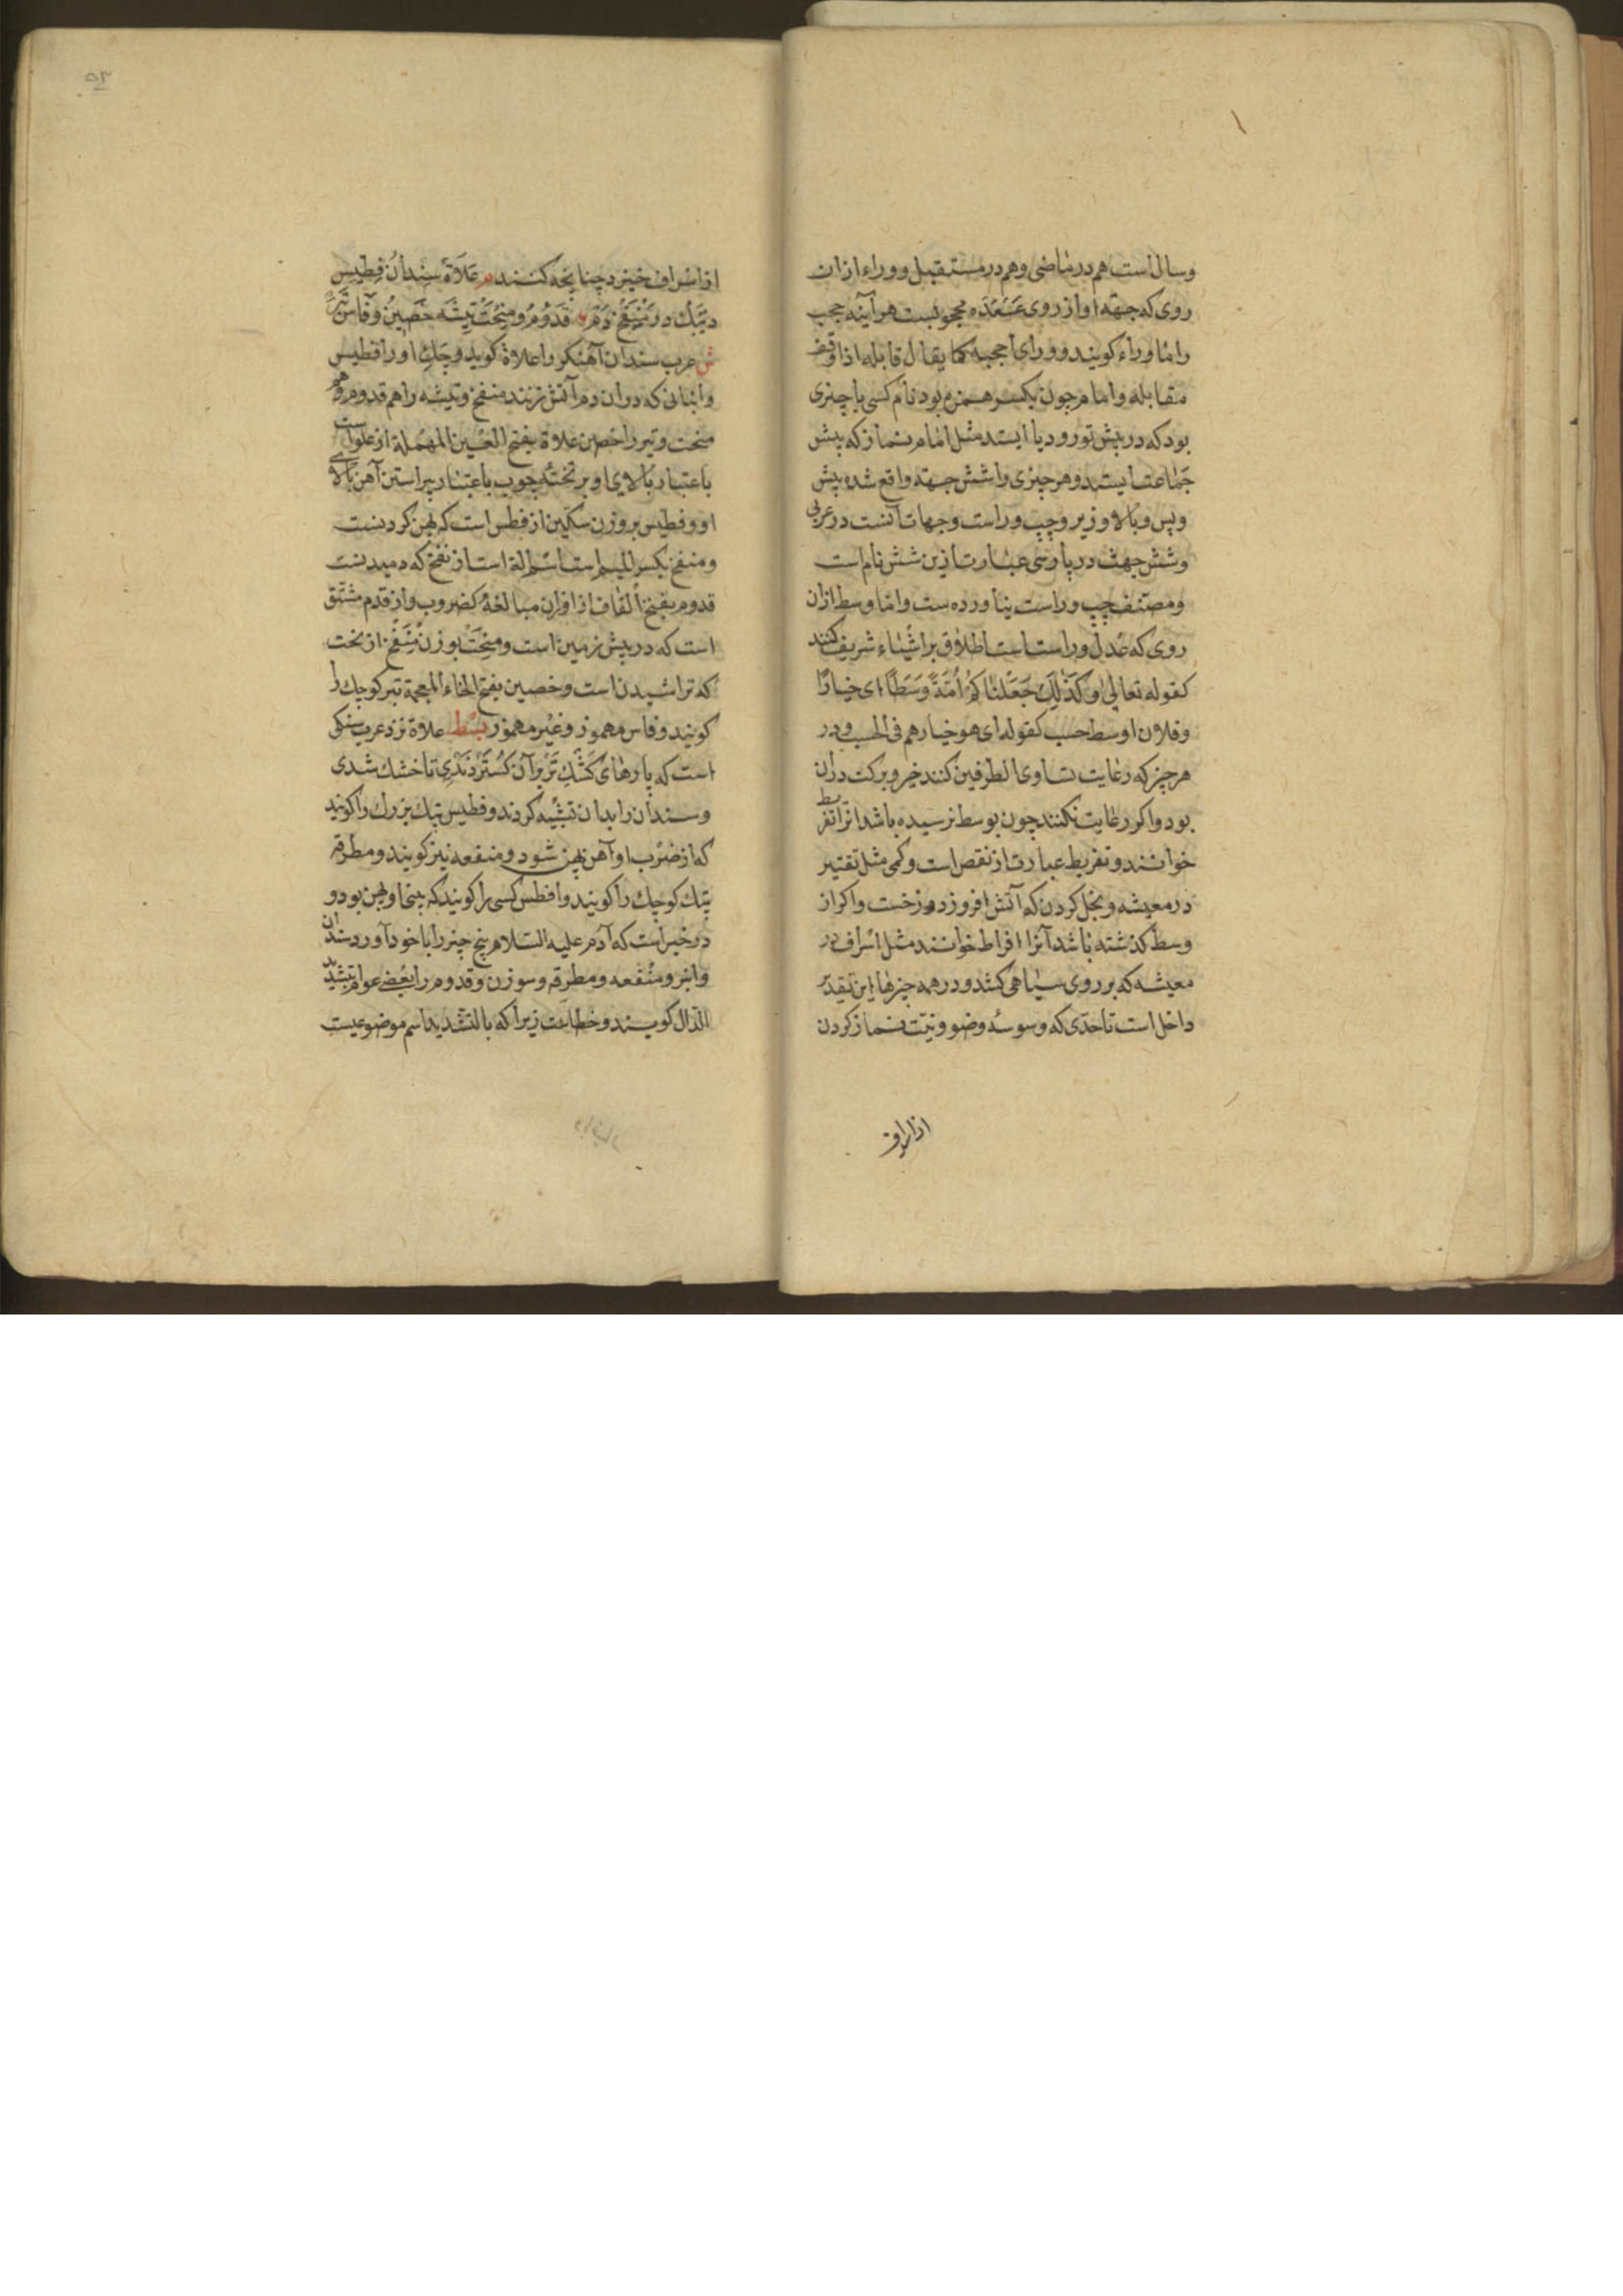 وسال است هم در ماضی وهم در مستقبل ووراء ازان
روی که جهة او از روی محجوبست هر آینه حجب
را ماوراء کویند وورای احجبه کما یقال قابله اذا وقف
مقابله واما م چون بکسر همزه بود نام کسی یا چیزی
بود که در پیش تو رود یا ایستد مثل امام نماز که پیش
جماعت ایستد وهر چیزی را شش جهة واقع شده پیش
وپس وبالا وزیر وچپ وراست وجهات آنست در عربی
وشش جهت در پارسی عبارت ازین شش نام است
ومصنف چپ وراست نیاورده ست واما وسط ازان
روی که عدل وراست است اطلاق بر اشیاء شریف کنند
کقوله تعالی وَکَذَلِكَ جَعَلْنَاکُمْ اُمَّةً وَسَطًا ای خیارًا
وفلان اوسط حسب کقوله ای هو خیارهم فی الحسب ودر
هر چیز که رعایت تساوی الطرفین کنند خیر وبرکت دران
بود واکر رعایت نکنند چون بوسط نرسیده باشد انرا تفریط
خوانند وتفریط عبارت از نقص است وکمی مثل تقتیر
در معیشه وبخل کردن که آتش افروز دوزخست واکر از
وسط کذشته باشد آنرا افراط خوانند مثل اسراف در
معیشه که بر روی سیاهی کشد ودر همه چیزها این تقدیر
داخل است تا حدّی که وسوسهٔ وضو ونیّت نماز کردن
از اسراف
۵۳
از اسراف خیزد چنانچه کنند م عَلَاةٌ سِنْدَان فِطّیس
دِنْفَخ دَمْ قَدُوْمُ ومِنْحَتْ تیشَه خَصِینُ وفَاسْ تَبَرْ
ش عرب سندان آهنکر را علاة کوید وچکش او را فطیس
وانبانی که دران دم آتش زنند منفخ وتیشه را هم قدوم وهم
منحت وتبر را خصین علاة بفتح العین المهملة از علواست
باعتبار بالای او بر تختهٔ چوب باعتبار پیراستن آهن بالای
او وفطیس بر وزن سکّین از فطس است که پهن کردنست
ومنفخ بکسر المیم است اسم الة است از نفخ که دمیدنست
قدوم بفتح القاف از اوزان مبالغهٔ کضروب واز قدم مشتق
است که در پیش زمین است ومنحت بوزن منفخ از نحت
که تراشیدن است وخصین بفتح الخاء المعجمة تبر کوچك را
کویند وفاس مهموز وغیر مهموز بسط علاة نزد عرب سنکی
است که پارهای کَشْكِ تَرْ بر آن کُسْتَرْدَنْدِی تا خشك شدی
وسندان را بدان تشبیه کردند وفطیس پتك بزرك را کویند
که از ضرب او آهن پهن شود ومنقعه نیز کویند ومطرقه
پتك کوچك را کویند وافطس کسی را کویند که بینی او پهن بود و
در خبر است که آدم علیه السّلام پنج چیز را با خود آورد سندان
وانبر ومنقعه ومطرقه وسوزن وقدوم را بعضی عوام بتشدید
الدّال کویند وخطاست زیرا که بالتشدید اسم موضوعیست